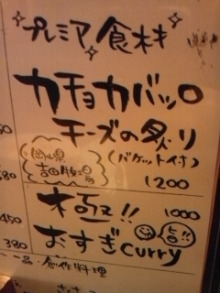 プレミア食材
カチョカバッロ
チーズの炙り
岡山県
吉田牧場
(バケット付き)
1200
極!!
1000
おすぎcurry
吉
680
450
380
一品・創作料理